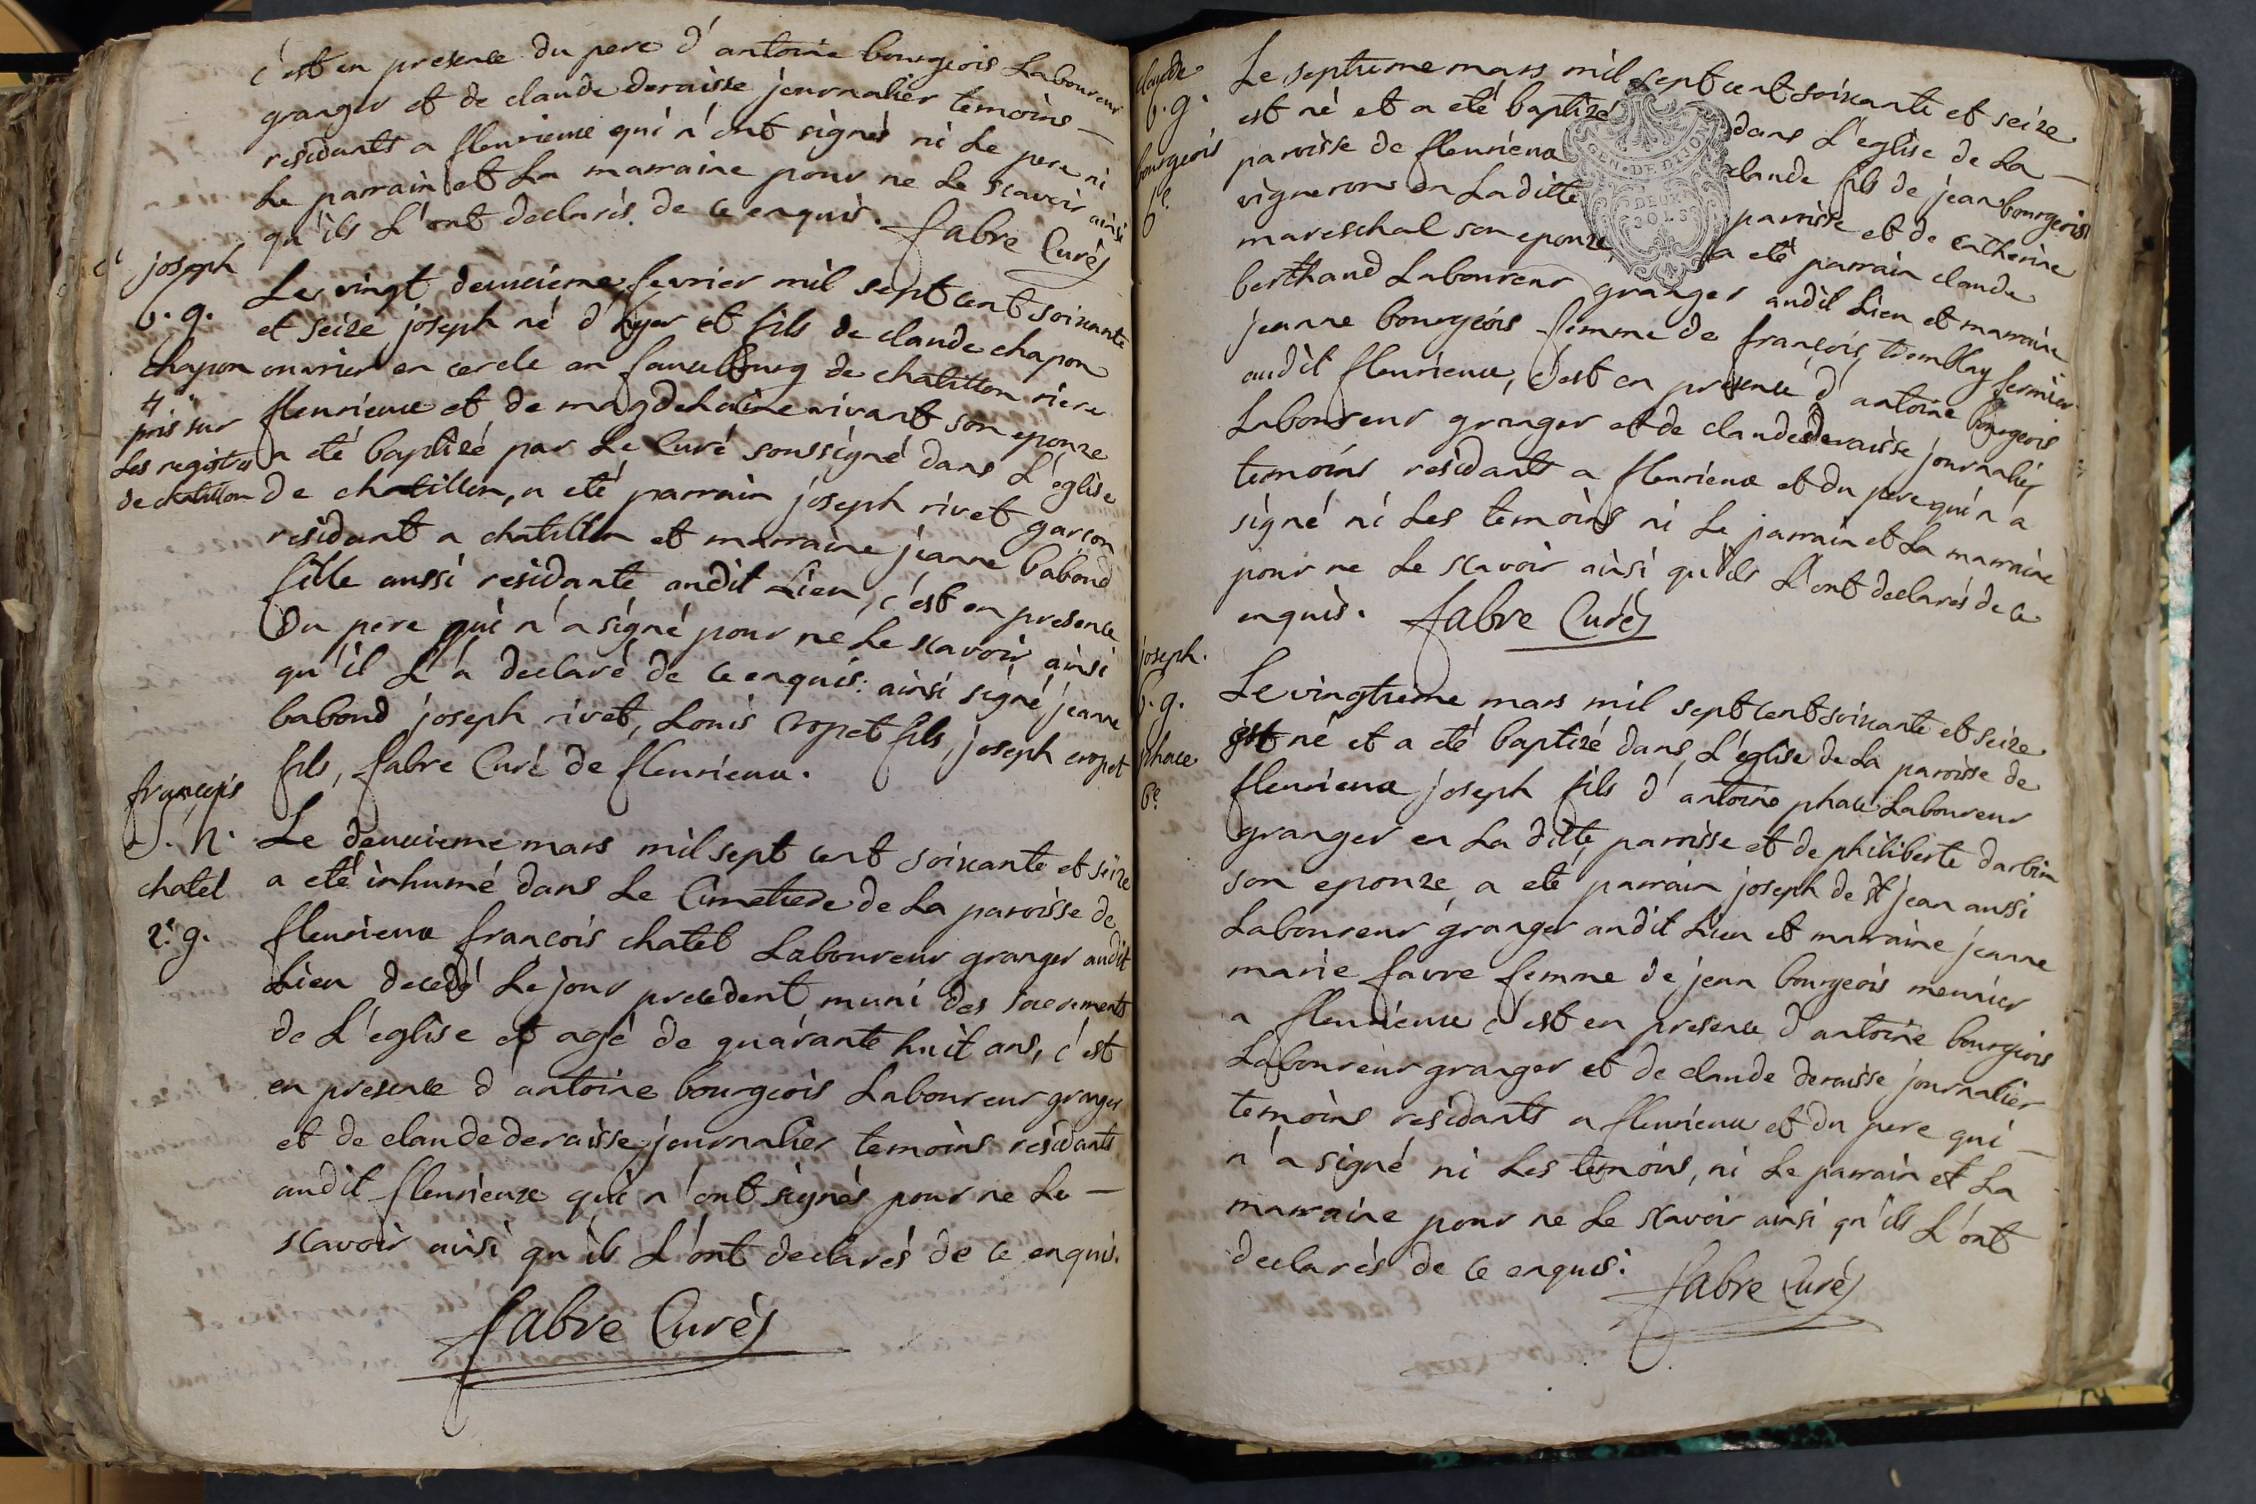 c'est en presence du pere d'antoine bourgeois Laboureur
granger et de claude deraisse journalier temoins —
residants a fleurieux qui n'ont signés ni Le pere ni
Le parrain et La marraine pour ne Le scavoir ainsi
qu'ils L'ont declarés de ce enquis. fabre Curé
joseph
b. g.
chapon
4
pris sur
Les registres
de chatillon
Le vingt deuxieme fevrier mil sept cent soixante
et seize joseph né d'hyer et fils de claude chapon
ouvrier en cercle au fauxbourg de chatillon riere
fleurieux et de magdelaine vivant son epouze
a eté baptizé par Le Curé soussigné dans L'église
de chatillon, a eté parrain joseph rivet garcon
residant a chatillon et marraine jeanne babond
fille aussi residante audit Lieu, c'est en presence
Du pere qui n'a signé pour ne Le scavoir ainsi
qu'il L'a declaré de ce enquis. ainsi signé, jeanne
babond joseph rivet, Louis cropet fils, joseph cropet
fils, fabre Curé de fleurieux.
françois
S. n.
chatel
2. g.
Le deuxieme mars mil sept cent soixante et seize
a eté inhumé dans Le Cimetiere de La paroisse de
fleurieux françois chatel Laboureur granger audit
Lieu decedé Le jour precedent muni des sacrements
de L'eglise et agé de quarante huit ans, c'est
en presence d'antoine bourgeois Laboureur granger
et de claude deraisse journalier temoins residants
audit fleurieux qui n'ont signés pour ne Le —
scavoir ainsi qu'ils L'ont declarés de ce enquis.
fabre Curé
claude
b. g.
bourgeois
5e
Le septieme mars mil sept cent soixante et seize
est né et a eté baptizé dans L'eglise de La —
paroisse de fleurieux claude fils de jean bourgeois
vigneron en Laditte paroisse et de catherine
mareschal son epouze, a eté parrain claude
berthaud Laboureur granger audit Lieu et marraine
jeanne bourgeois femme de françois tremblay fermier
audit fleurieux, c'est en presence d'antoine bourgeois
Laboureur granger et de claude deraisse journalier
temoins residants a fleurieux et du pere qui n'a
signé ni Les temoins ni Le parrain et La marraine
pour ne Le scavoir ainsi qu'ils L'ont declarés de ce
enquis. fabre Curé
GEN. DE DIJON
DEUX
SOLS
joseph.
b. g.
phace
6e
Le vingtieme mars mil sept cent soixante et seize
est né et a eté baptizé dans L'eglise de La paroisse de
fleurieux joseph fils d'antoine phace Laboureur
granger en La ditte paroisse et de philiberte darbin
son epouze, a eté parrain joseph de st jean aussi
Laboureur granger audit Lieu et marraine jeanne
marie favre femme de jean bourgeois meunier
a fleurieux c'est en presence d'antoine bourgeois
Laboureur granger et de claude deraisse journalier
temoins residants a fleurieux et du pere qui —
n'a signé ni Les temoins, ni Le parrain et La
marraine pour ne Le scavoir ainsi qu'ils L'ont
declarés de ce enquis. fabre Curé